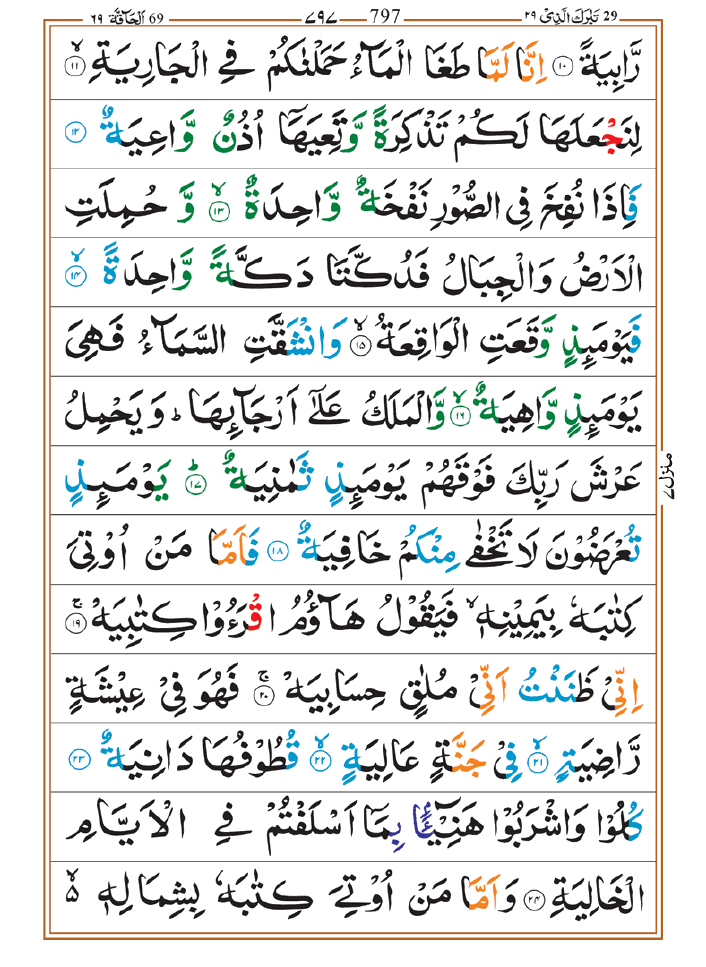 29 تَبٰرَكَ الَّذِیْ ۲۹ 797 ۷۹۷ 69 اَلْحَآقَّة ۶۹
رَّابِیَةً ۝۱۰ اِنَّا لَمَّا طَغَا الْمَآءُ حَمَلْنٰكُمْ فِی الْجَارِیَةِ ۝۱۱ۙ
لِنَجْعَلَهَا لَكُمْ تَذْكِرَةً وَّتَعِیَهَاۤ اُذُنٌ وَّاعِیَةٌ ۝۱۲
فَاِذَا نُفِخَ فِی الصُّوْرِ نَفْخَةٌ وَّاحِدَةٌ ۝۱۳ۙ وَّ حُمِلَتِ
الْاَرْضُ وَالْجِبَالُ فَدُكَّتَا دَكَّةً وَّاحِدَةً ۝۱۴ۙ
فَیَوْمَىِٕذٍ وَّقَعَتِ الْوَاقِعَةُ ۝۱۵ۙ وَانْشَقَّتِ السَّمَآءُ فَهِیَ
یَوْمَىِٕذٍ وَّاهِیَةٌ ۝۱۶ۙ وَّالْمَلَكُ عَلٰۤی اَرْجَآىِٕهَا ؕ وَیَحْمِلُ
عَرْشَ رَبِّكَ فَوْقَهُمْ یَوْمَىِٕذٍ ثَمٰنِیَةٌ ۝۱۷ؕ یَوْمَىِٕذٍ
تُعْرَضُوْنَ لَا تَخْفٰی مِنْكُمْ خَافِیَةٌ ۝۱۸ فَاَمَّا مَنْ اُوْتِیَ
كِتٰبَهٗ بِیَمِیْنِهٖ ۙ فَیَقُوْلُ هَآؤُمُ اقْرَءُوْا كِتٰبِیَهْ ۝۱۹ۚ
اِنِّیْ ظَنَنْتُ اَنِّیْ مُلٰقٍ حِسَابِیَهْ ۝۲۰ۚ فَهُوَ فِیْ عِیْشَةٍ
رَّاضِیَةٍ ۝۲۱ۙ فِیْ جَنَّةٍ عَالِیَةٍ ۝۲۲ۙ قُطُوْفُهَا دَانِیَةٌ ۝۲۳
كُلُوْا وَاشْرَبُوْا هَنِیْٓـًٔۢا بِمَاۤ اَسْلَفْتُمْ فِی الْاَیَّامِ
الْخَالِیَةِ ۝۲۴ وَاَمَّا مَنْ اُوْتِیَ كِتٰبَهٗ بِشِمَالِهٖ ۙ۬
منزل ۷